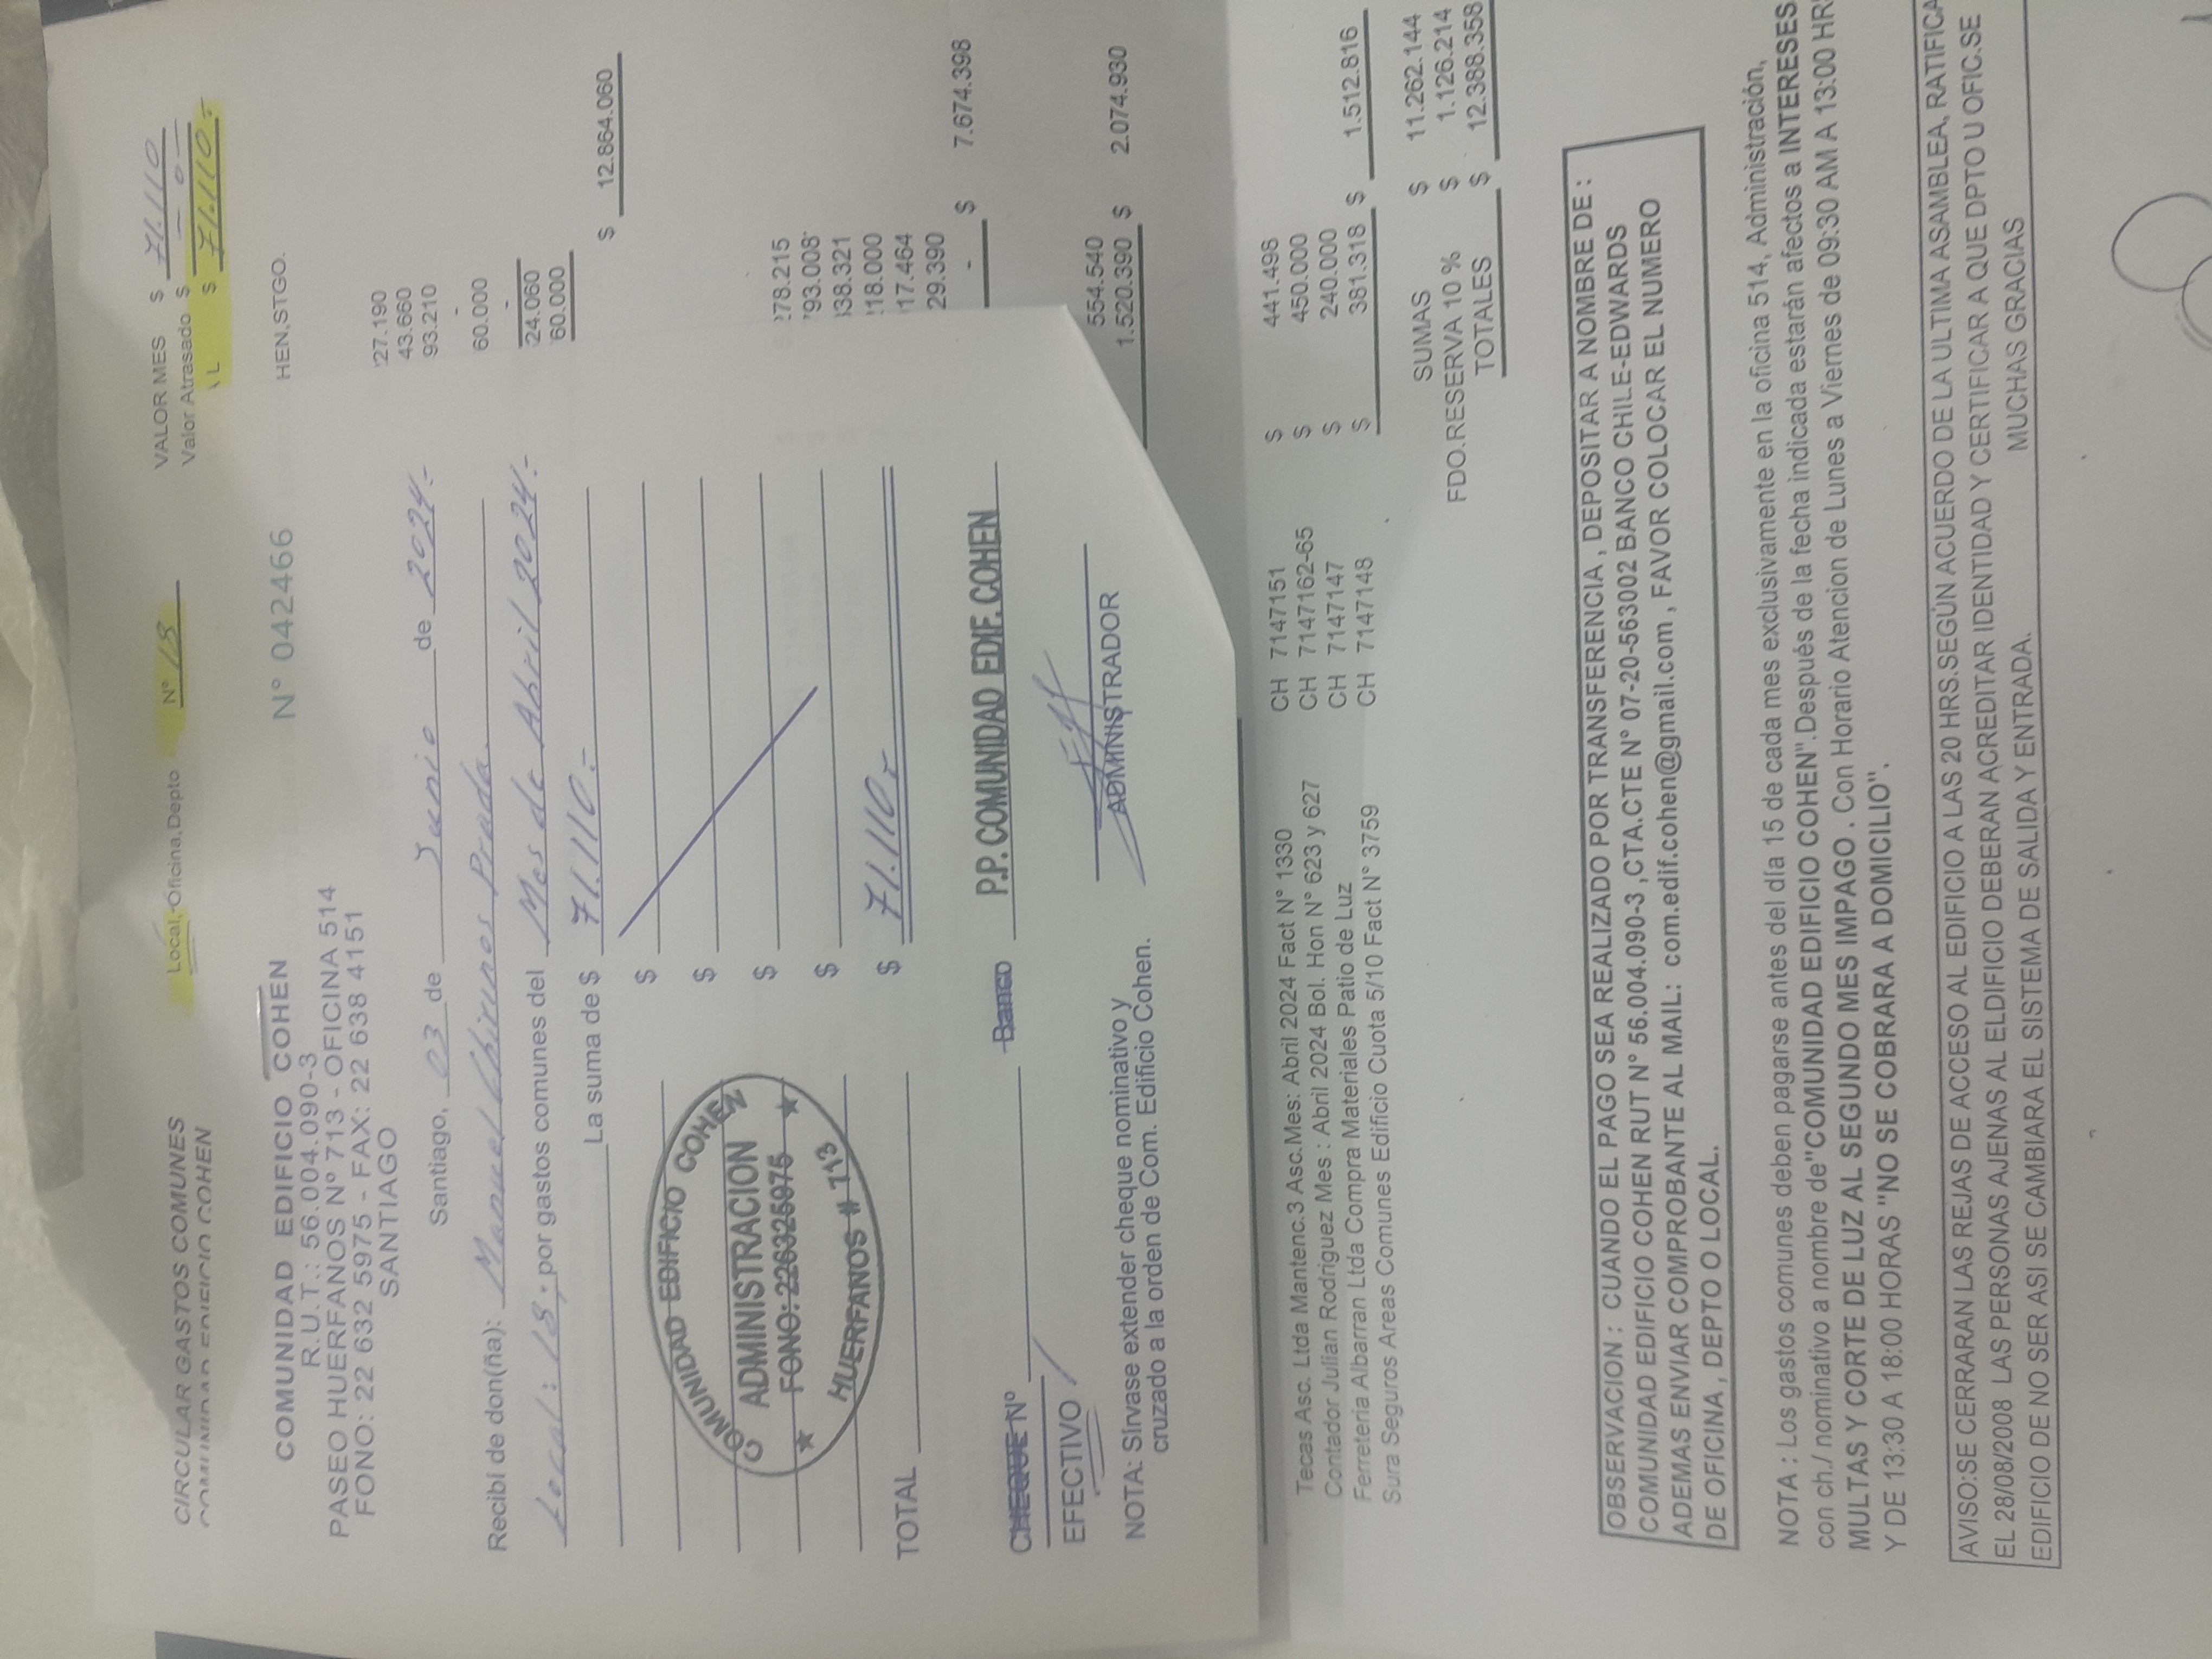 CIRCULAR GASTOS COMUNES
COMUNIDAD EDIFICIO COHEN
Local,-Oficina,Depto Nº 18
VALOR MES $ 71.110
Valor Atrasado $ -0-
AL $ 71.110.-
COMUNIDAD EDIFICIO COHEN
R.U.T.: 56.004.090-3
PASEO HUERFANOS Nº 713 - OFICINA 514
FONO: 22 632 5975 - FAX: 22 638 4151
SANTIAGO
N° 042466
HEN,STGO.
Santiago, 03 de Junio de 2024.-
Recibí de don(ña): Manuel Chirinos Prada.
Local: 18; por gastos comunes del Mes de Abril 2024.-
La suma de $ 71.110.-
$
$
$
$
TOTAL $ 71.110.-
COMUNIDAD EDIFICIO COHEN
ADMINISTRACION
FONO: 226325975
HUERFANOS # 713
CHEQUE Nº Banco P.P. COMUNIDAD EDIF. COHEN
EFECTIVO
ADMINISTRADOR
NOTA: Sírvase extender cheque nominativo y
cruzado a la orden de Com. Edificio Cohen.
27.190
43.660
93.210
-
60.000
-
24.060
60.000
$ 12.864.060
278.215
93.008
38.321
18.000
17.464
29.390
- $ 7.674.398
554.540
1.520.390 $ 2.074.930
Tecas Asc. Ltda Mantenc.3 Asc.Mes: Abril 2024 Fact N° 1330 CH 7147151 $ 441.498
Contador Julian Rodriguez Mes : Abril 2024 Bol. Hon N° 623 y 627 CH 7147162-65 $ 450.000
Ferreteria Albarran Ltda Compra Materiales Patio de Luz CH 7147147 $ 240.000
Sura Seguros Areas Comunes Edificio Cuota 5/10 Fact N° 3759 CH 7147148 $ 381.318 $ 1.512.816
SUMAS $ 11.262.144
FDO.RESERVA 10 % $ 1.126.214
TOTALES $ 12.388.358
OBSERVACION : CUANDO EL PAGO SEA REALIZADO POR TRANSFERENCIA , DEPOSITAR A NOMBRE DE :
COMUNIDAD EDIFICIO COHEN RUT N° 56.004.090-3 ,CTA.CTE N° 07-20-563002 BANCO CHILE-EDWARDS
ADEMAS ENVIAR COMPROBANTE AL MAIL: com.edif.cohen@gmail.com , FAVOR COLOCAR EL NUMERO
DE OFICINA , DEPTO O LOCAL.
NOTA : Los gastos comunes deben pagarse antes del día 15 de cada mes exclusivamente en la oficina 514, Administración,
con ch./ nominativo a nombre de"COMUNIDAD EDIFICIO COHEN".Después de la fecha indicada estarán afectos a INTERESES
MULTAS Y CORTE DE LUZ AL SEGUNDO MES IMPAGO . Con Horario Atencion de Lunes a Viernes de 09:30 AM A 13:00 HR
Y DE 13:30 A 18:00 HORAS "NO SE COBRARA A DOMICILIO".
AVISO:SE CERRARAN LAS REJAS DE ACCESO AL EDIFICIO A LAS 20 HRS.SEGÚN ACUERDO DE LA ULTIMA ASAMBLEA, RATIFICA
EL 28/08/2008 LAS PERSONAS AJENAS AL ELDIFICIO DEBERAN ACREDITAR IDENTIDAD Y CERTIFICAR A QUE DPTO U OFIC.SE
EDIFICIO DE NO SER ASI SE CAMBIARA EL SISTEMA DE SALIDA Y ENTRADA. MUCHAS GRACIAS